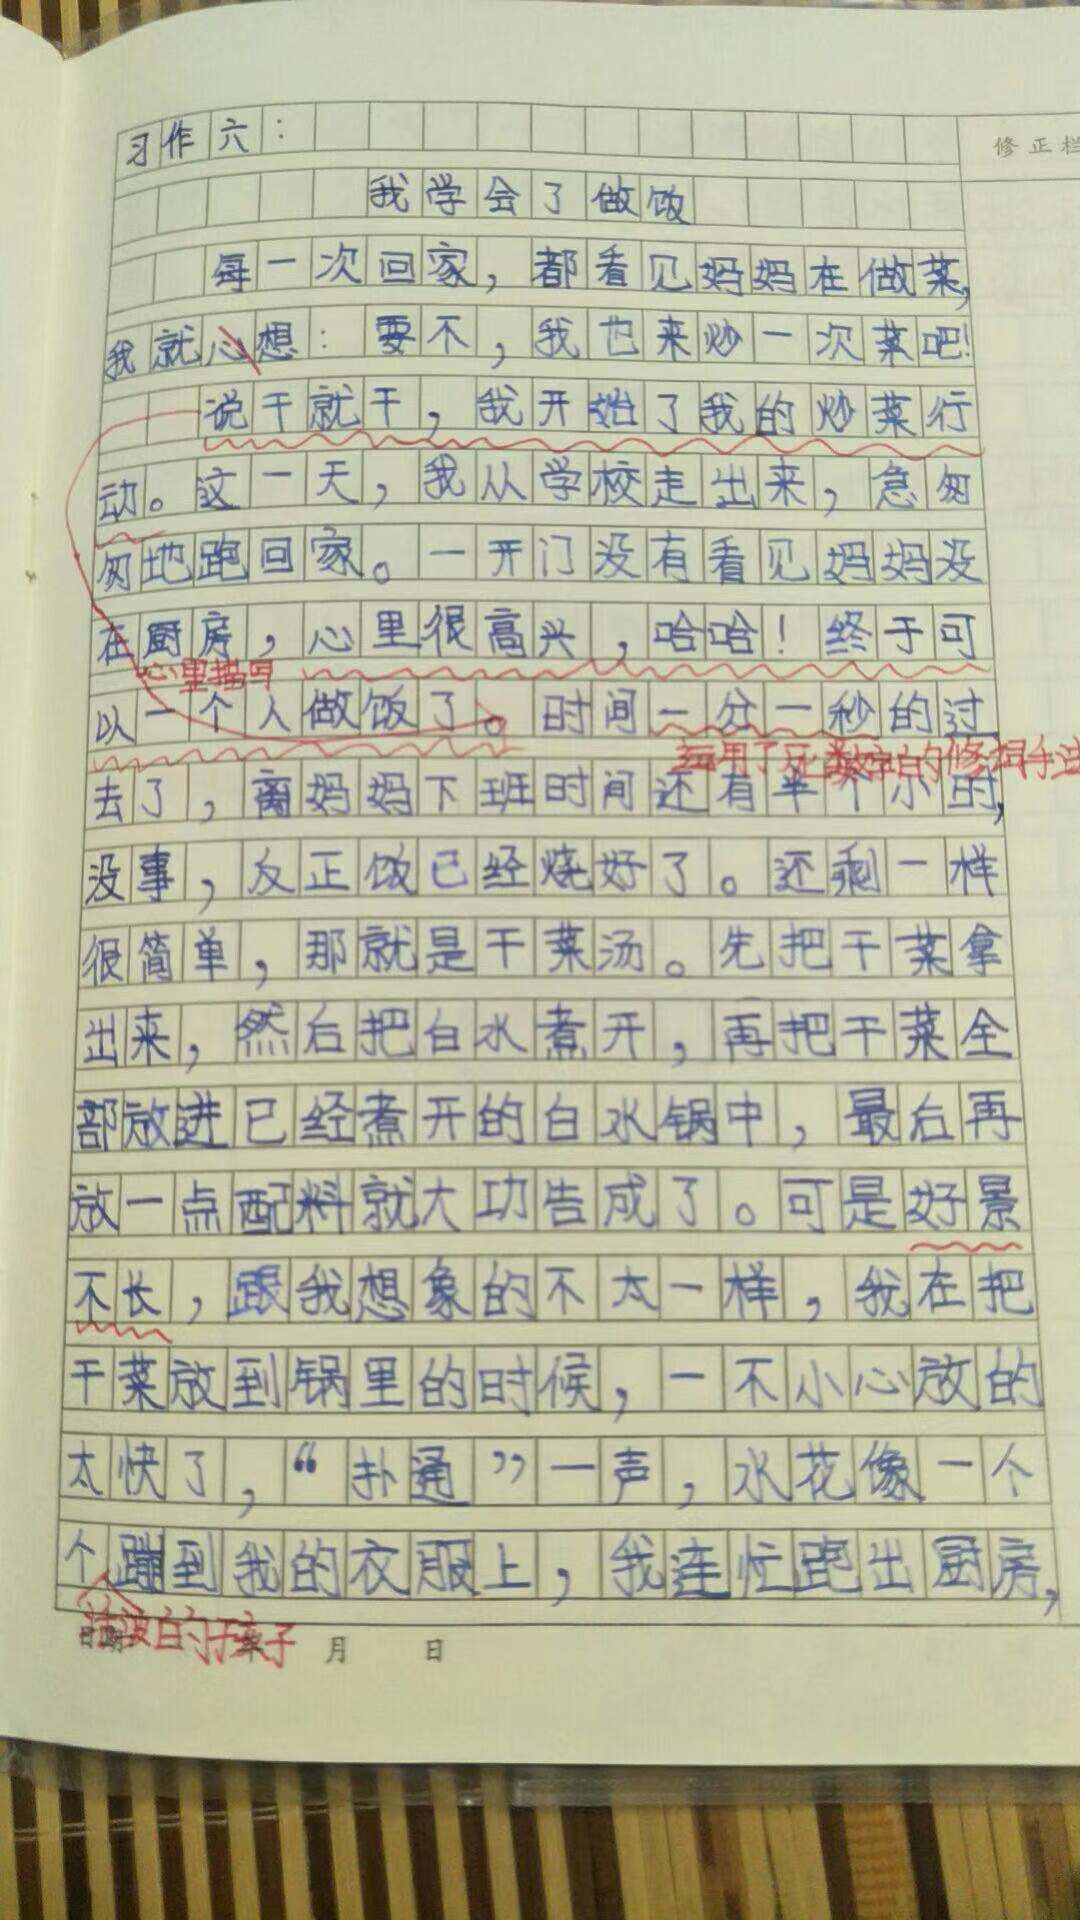 习作六：
修正栏
我学会了做饭
每一次回家，都看见妈妈在做菜，
我就心想：要不，我也来炒一次菜吧！
说干就干，我开始了我的炒菜行
动。这一天，我从学校走出来，急匆
匆地跑回家。一开门没有看见妈妈没
在厨房，心里很高兴，哈哈！终于可
心里描写
以一个人做饭了。时间一分一秒的过
运用了 数字的修辞手法
去了，离妈妈下班时间还有半个小时，
没事，反正饭已经烧好了。还剩一样
很简单，那就是干菜汤。先把干菜拿
出来，然后把白水煮开，再把干菜全
部放进已经煮开的白水锅中，最后再
放一点配料就大功告成了。可是好景
不长，跟我想象的不太一样，我在把
干菜放到锅里的时候，一不小心放的
太快了，“扑通”一声，水花像一个
个蹦到我的衣服上，我连忙跑出厨房，
的孩子
月 日